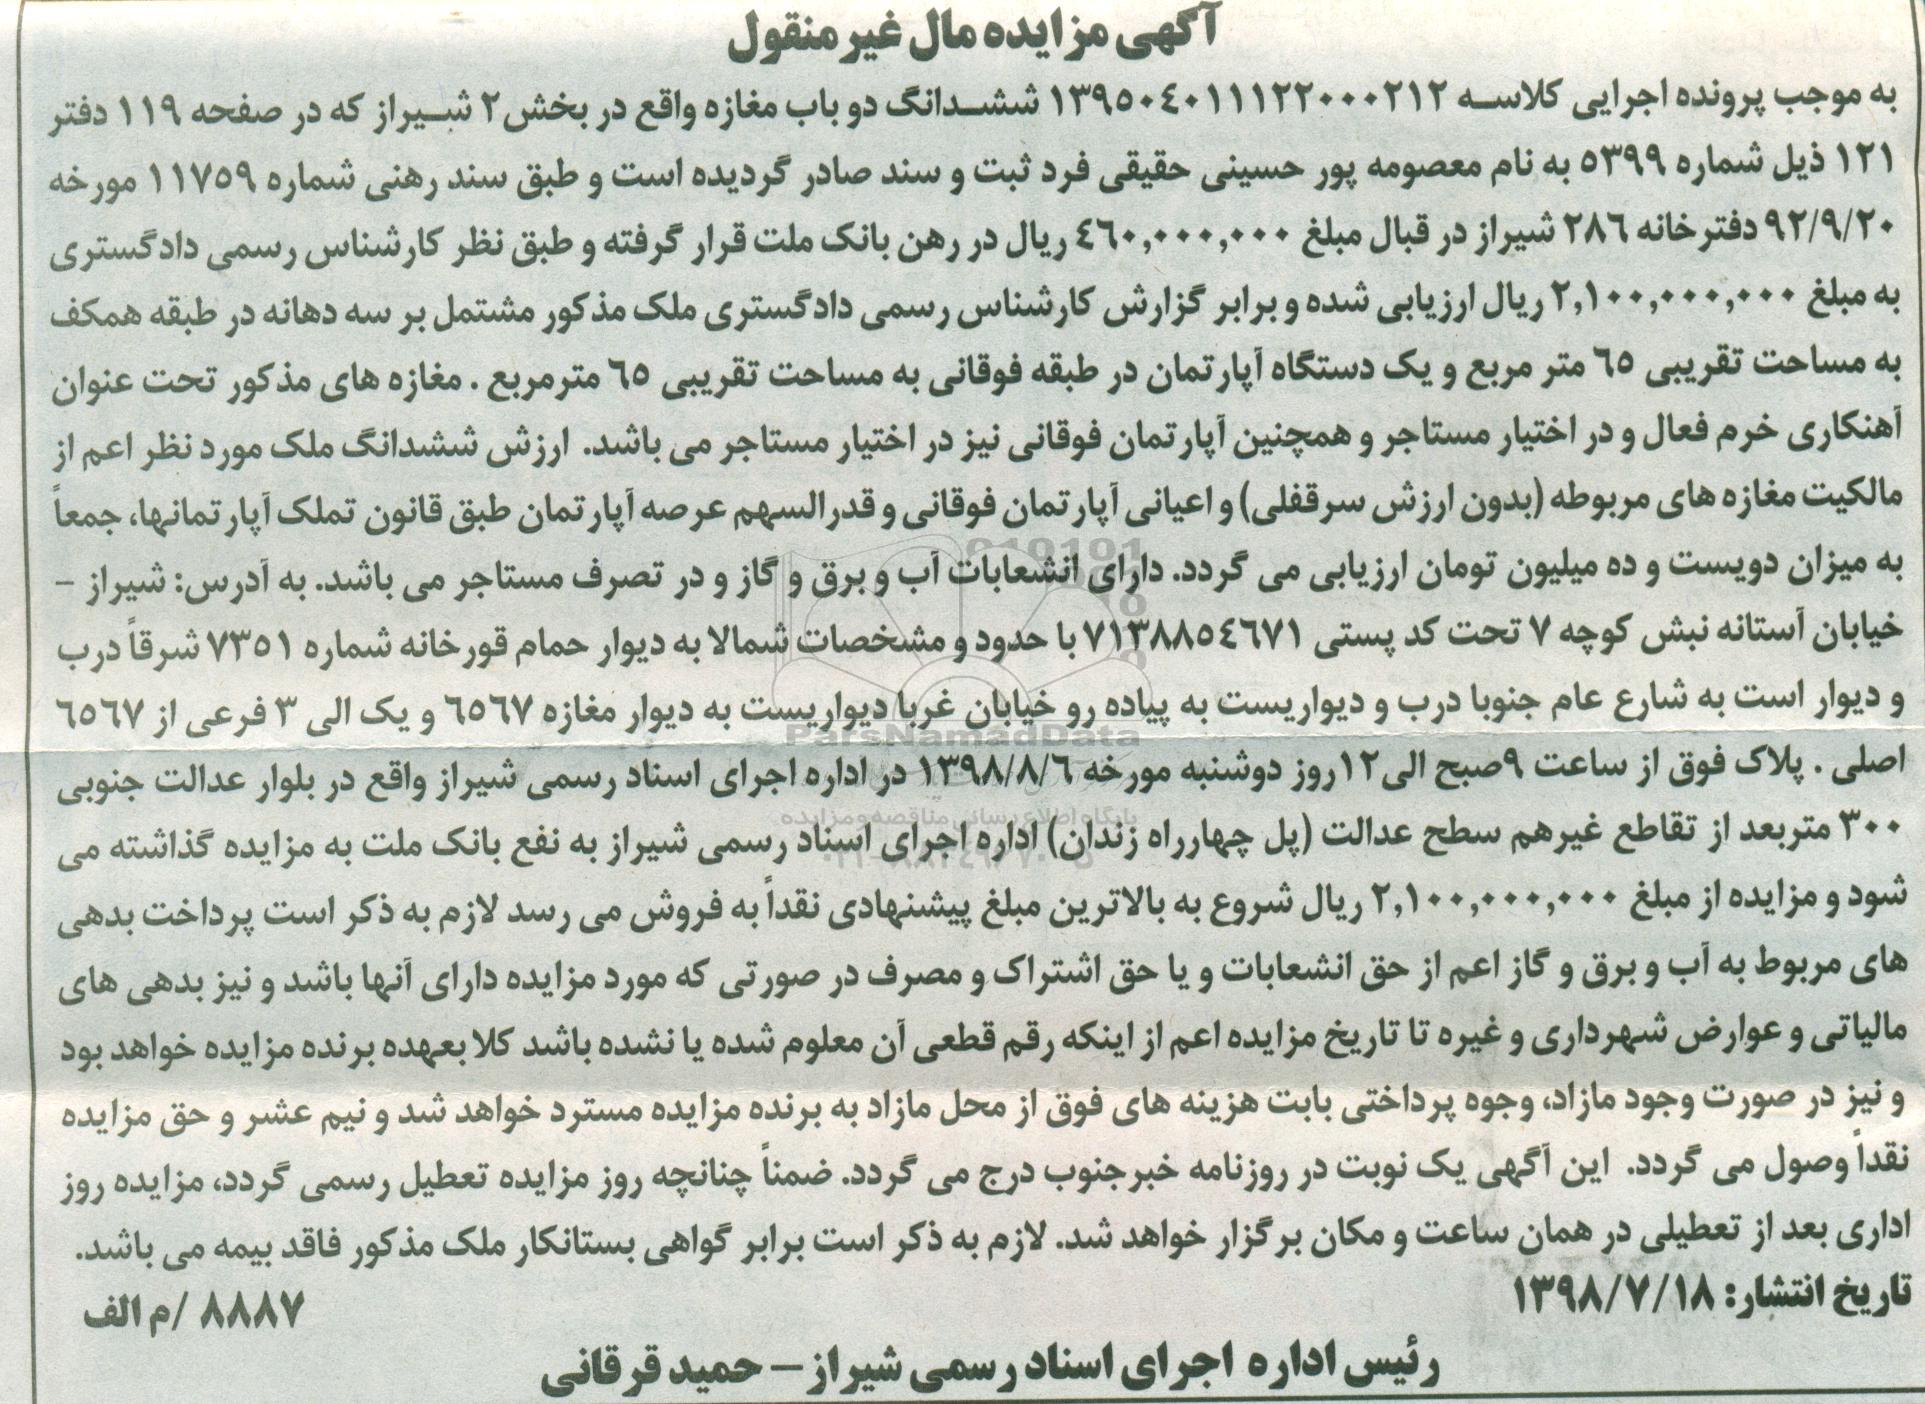 آگهی مزایده مال غیر منقول
به موجب پرونده اجرایی کلاسه ۱۳۹۵۰۴۰۱۱۱۲۲۰۰۰۲۱۲ ششدانگ دو باب مغازه واقع در بخش۲ شیراز که در صفحه ۱۱۹ دفتر
۱۲۱ ذیل شماره ۵۳۹۹ به نام معصومه پور حسینی حقیقی فرد ثبت و سند صادر گردیده است و طبق سند رهنی شماره ۱۱۷۵۹ مورخه
۹۲/۹/۲۰ دفترخانه ۲۸۶ شیراز در قبال مبلغ ۴۶۰,۰۰۰,۰۰۰ ریال در رهن بانک ملت قرار گرفته و طبق نظر کارشناس رسمی دادگستری
به مبلغ ۲,۱۰۰,۰۰۰,۰۰۰ ریال ارزیابی شده و برابر گزارش کارشناس رسمی دادگستری ملک مذکور مشتمل بر سه دهانه در طبقه همکف
به مساحت تقریبی ۶۵ متر مربع و یک دستگاه آپارتمان در طبقه فوقانی به مساحت تقریبی ۶۵ مترمربع . مغازه های مذکور تحت عنوان
آهنکاری خرم فعال و در اختیار مستاجر و همچنین آپارتمان فوقانی نیز در اختیار مستاجر می باشد. ارزش ششدانگ ملک مورد نظر اعم از
مالکیت مغازه های مربوطه (بدون ارزش سرقفلی) و اعیانی آپارتمان فوقانی و قدرالسهم عرصه آپارتمان طبق قانون تملک آپارتمانها، جمعاً
به میزان دویست و ده میلیون تومان ارزیابی می گردد. دارای انشعابات آب و برق و گاز و در تصرف مستاجر می باشد. به آدرس: شیراز -
خیابان آستانه نبش کوچه ۷ تحت کد پستی ۷۱۳۸۸۵۴۶۷۱ با حدود و مشخصات شمالا به دیوار حمام قورخانه شماره ۷۳۵۱ شرقاً درب
و دیوار است به شارع عام جنوبا درب و دیواریست به پیاده رو خیابان غربا دیواریست به دیوار مغازه ۶۵۶۷ و یک الی ۳ فرعی از ۶۵۶۷
اصلی . پلاک فوق از ساعت ۹صبح الی۱۲روز دوشنبه مورخه ۱۳۹۸/۸/۶ در اداره اجرای اسناد رسمی شیراز واقع در بلوار عدالت جنوبی
۳۰۰ متربعد از تقاطع غیرهم سطح عدالت (پل چهارراه زندان) اداره اجرای اسناد رسمی شیراز به نفع بانک ملت به مزایده گذاشته می
شود و مزایده از مبلغ ۲,۱۰۰,۰۰۰,۰۰۰ ریال شروع به بالاترین مبلغ پیشنهادی نقداً به فروش می رسد لازم به ذکر است پرداخت بدهی
های مربوط به آب و برق و گاز اعم از حق انشعابات و یا حق اشتراک و مصرف در صورتی که مورد مزایده دارای آنها باشد و نیز بدهی های
مالیاتی و عوارض شهرداری و غیره تا تاریخ مزایده اعم از اینکه رقم قطعی آن معلوم شده یا نشده باشد کلا بعهده برنده مزایده خواهد بود
و نیز در صورت وجود مازاد، وجوه پرداختی بابت هزینه های فوق از محل مازاد به برنده مزایده مسترد خواهد شد و نیم عشر و حق مزایده
نقداً وصول می گردد. این آگهی یک نوبت در روزنامه خبرجنوب درج می گردد. ضمناً چنانچه روز مزایده تعطیل رسمی گردد، مزایده روز
اداری بعد از تعطیلی در همان ساعت و مکان برگزار خواهد شد. لازم به ذکر است برابر گواهی بستانکار ملک مذکور فاقد بیمه می باشد.
تاریخ انتشار: ۱۳۹۸/۷/۱۸ ۸۸۸۷ /م الف
رئیس اداره اجرای اسناد رسمی شیراز – حمید قرقانی
ParsNamadData
پایگاه اطلاع رسانی مناقصه و مزایده